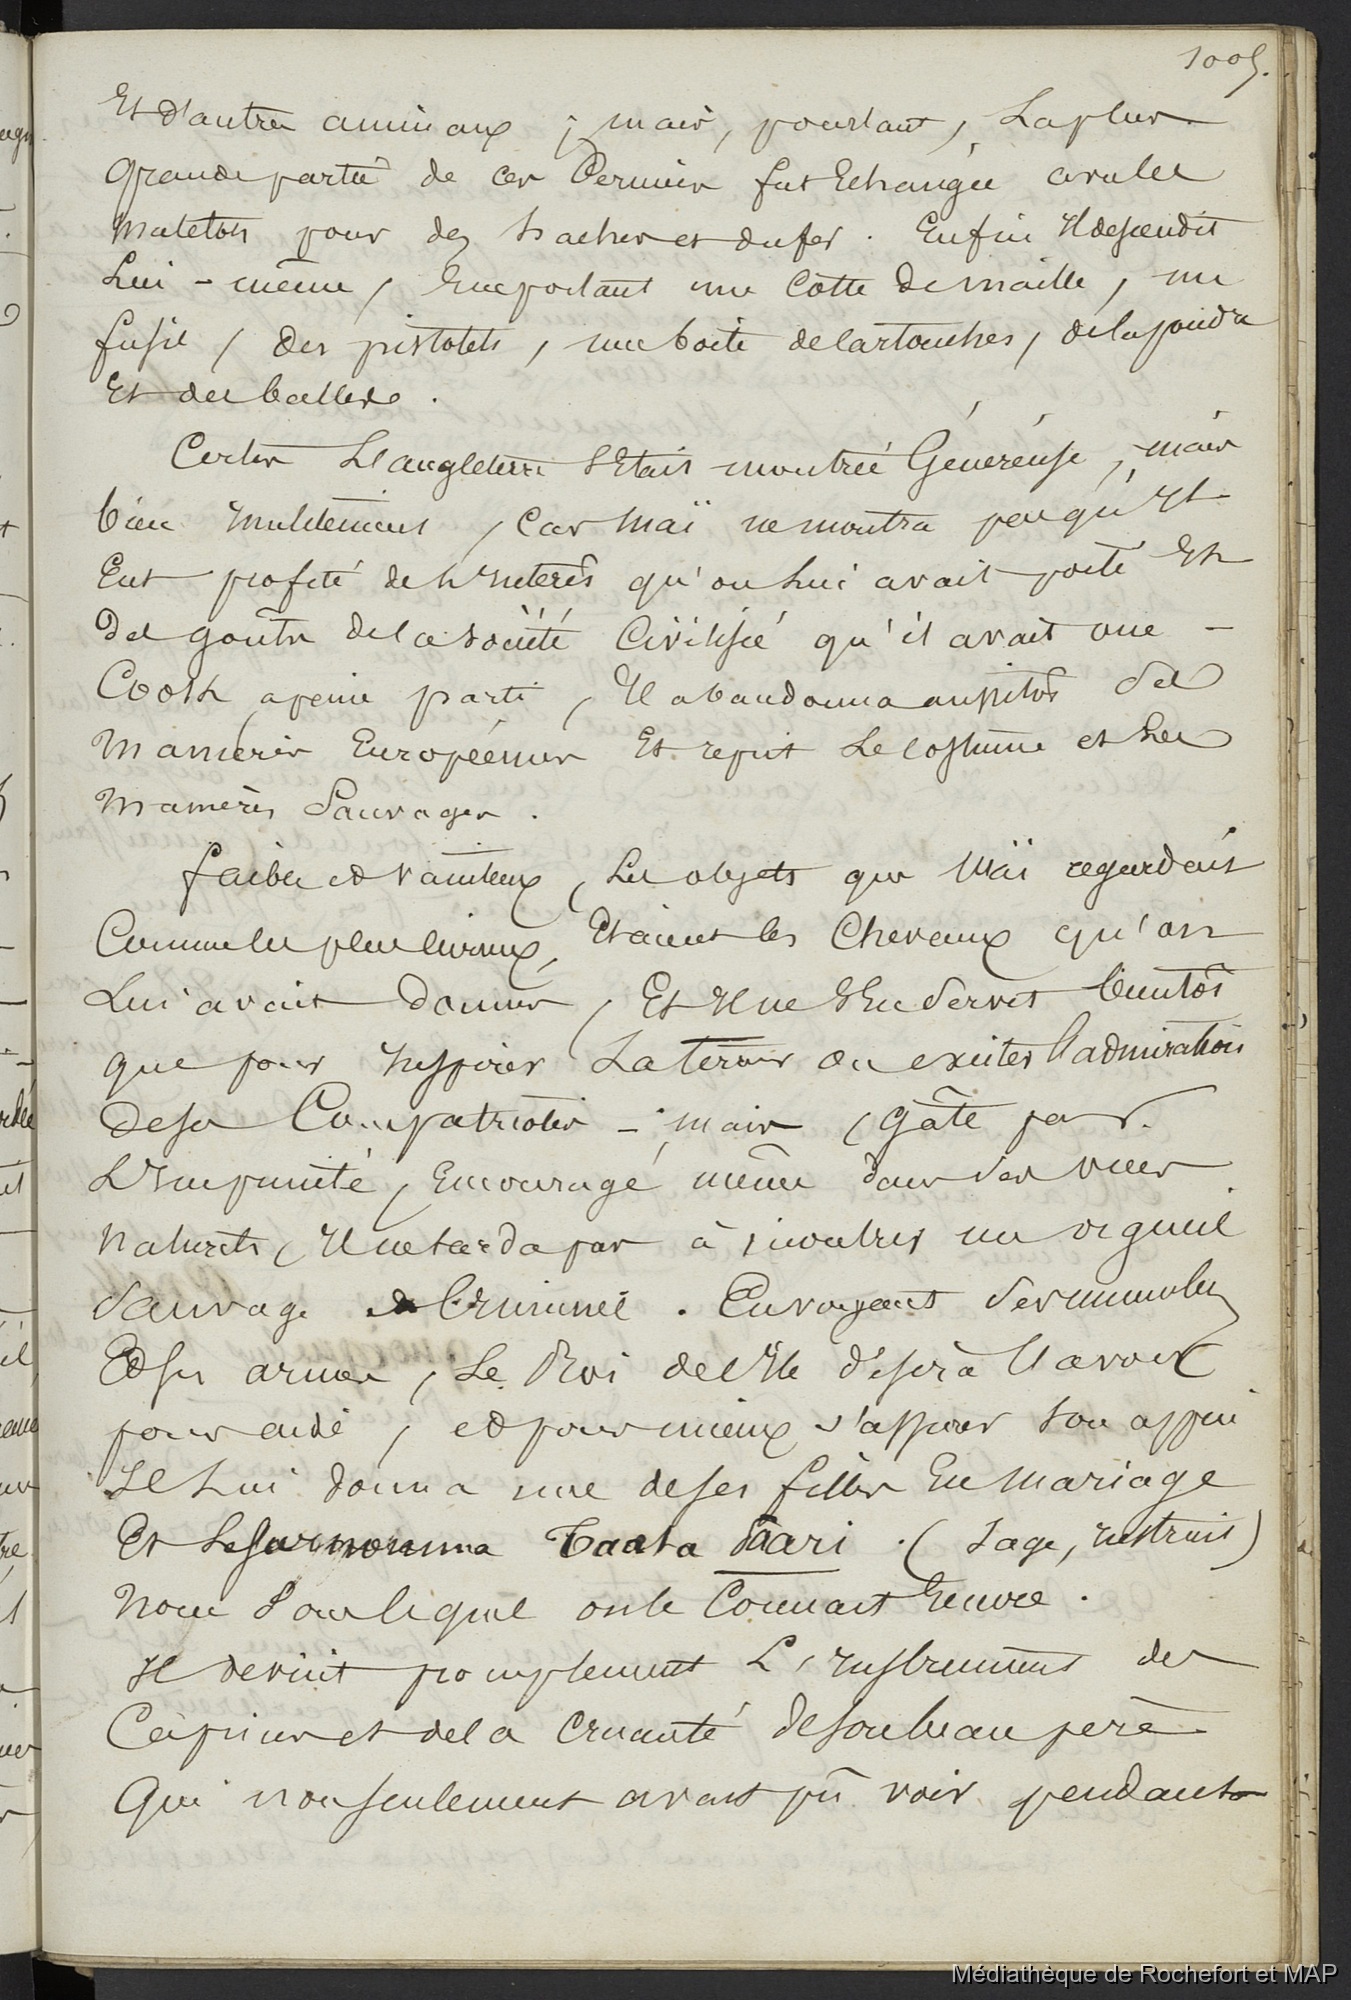 1005.
Et d'autres animaux ; mais, pourtant, La plus
Grande partie de ces Derniers fut Echangée avec les
Matelots pour des haches et du fer. Enfin Il descendit
Lui-même, Emportant une Cotte de maille, un
fusil, des pistolets, une boite de Cartouches, de la poudre
Et des balles.
Certes L'angleterre s'Etait montrée Généreuse, mais
bien Inutilement, Car Maï ne montra pas qu'Il
Eut profité de l'Interêt qu'on Lui avait porté Et
des goûts de la société Civilisée qu'il avait vue -
Cook apeine parti, Il abandonna aussitôt ses
Manieres Européennes Et reprit Le costume et Les
Manières Sauvages.
faible et vaniteux, Les objets que Maï regardait
Comme les plus curieux, Etaient les Chevaux qu'on
Lui avait donnés, Et Il ne s'En servit bientôt
que pour Inspirer La terreur ou exciter l'admiration
de ses Compatriotes - mais, gâté par
L'Impunité, Encouragé même dans ses vices
Naturels, Il ne tarda pas à montrer un orgueil
Sauvage et Criminel. Envoyant ses
Et ses armes, Le Roi de l'Ile désira l'avoir
pour aide, et pour mieux s'assurer son appui
Il Lui donna une de ses filles En Mariage
Et Le surnomma Taata Paari. (Sage, Instruit)
Nom sous lequel on le Connait Encore.
Il devint promptement L'Instrument des
Caprices et de la Cruauté de son beau père
Qui non seulement avait pû voir pendant
Médiathèque de Rochefort et MAP